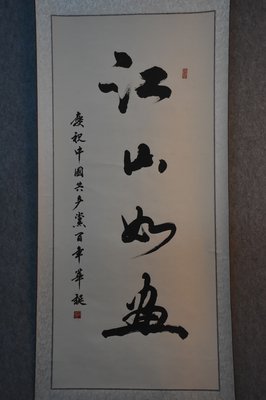 江山如画
庆祝中国共产党百年华诞